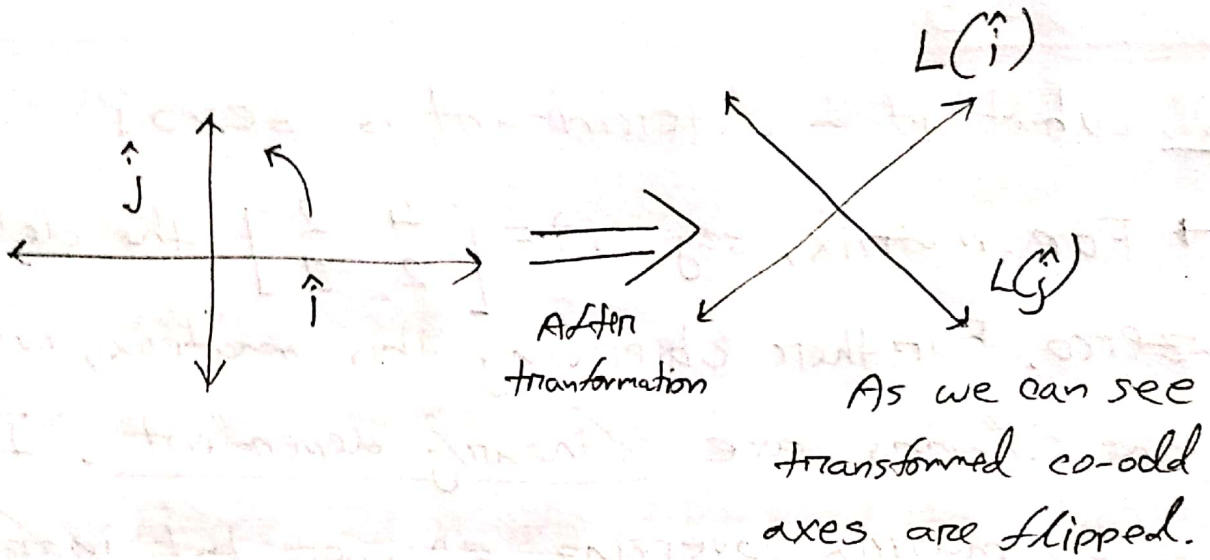 L(î)
ĵ
î
L(ĵ)
After
tranformation
As we can see
transformed co-odd
axes are flipped.